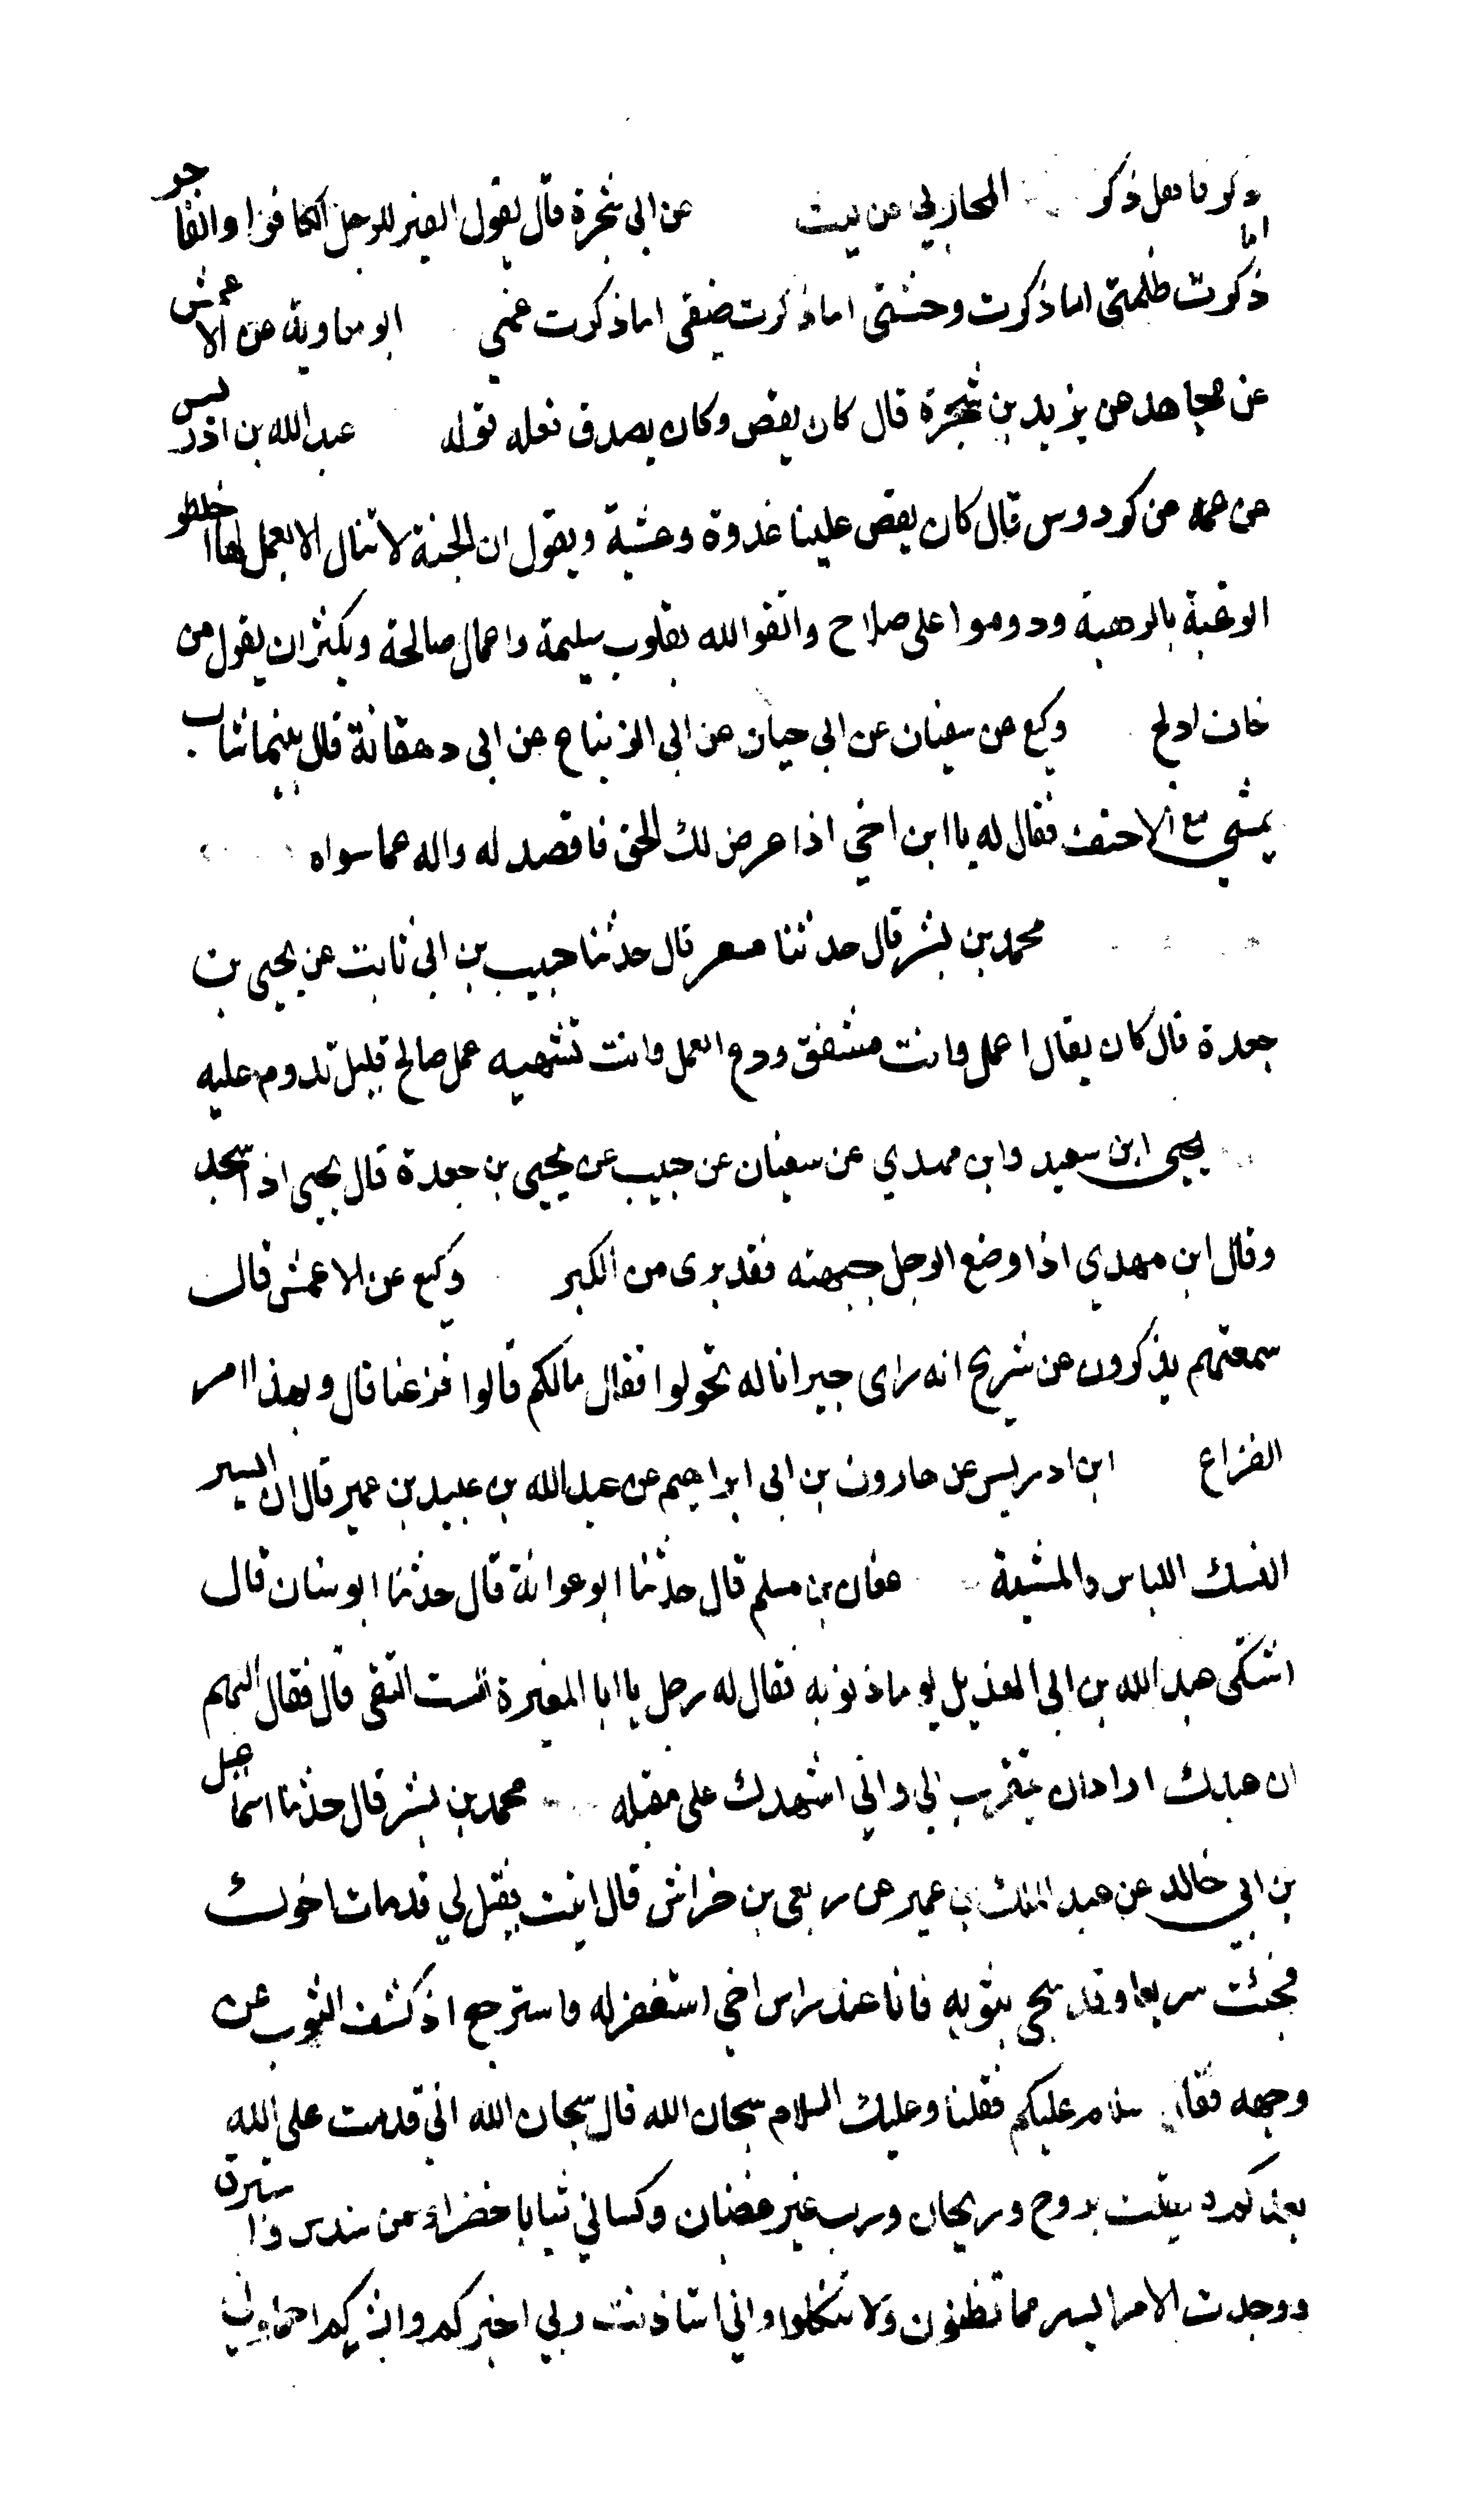 ذكرنا فعل ذكر المحاربي عن ليث عن ابي شجرة قال يقول القبر للرجل الكافر او الفاجر
اما ذكرت ظلمتي اما ذكرت وحشتي اما ذكرت ضيقي اما ذكرت غمي ابو معاوية عن الاعمش
عن مجاهد عن يزيد بن شجرة قال كان يقص وكان يصدق فعله قوله عبد الله بن ادريس
عن عمه عن كردوس قال كان يقص علينا غدوة وعشية ويقول ان الجنة لا تنال الا بعمل لها اخلطوا
الرغبة بالرهبة ودوموا على صلاح واتقوا الله بقلوب سليمة واعمال صالحة ويكثر ان يقول من
خاف ادلج وكيع عن سفيان عن ابي حيان عن ابي الزنباع عن ابي دهقانة قال بينما شاب
يمشي مع الاحنف فقال له يا ابن اخي اذا عرض لك الحق فاقصد له واله عما سواه
محمد بن بشر قال حدثنا مسعر قال حدثنا حبيب بن ابي ثابت عن يحيى بن
جعدة قال كان يقال اعمل وانت مشفق ودع العمل وانت تشهيه عمل صالح قليل تدوم عليه
يحيى ابن سعيد وابن مهدي عن سفيان عن حبيب عن يحيى بن جعدة قال يحيى اذا سجد
وقال ابن مهدي اذا وضع الرجل جبهته فقد برى من الكبر وكيع عن الاعمش قال
سمعتهم يذكرون عن شريح انه راى جيرانا له تحولوا فقال مالكم قالوا فرغنا قال وبهذا امر
الفراغ ابن ادريس عن هارون بن ابي ابراهيم عن عبد الله بن عبيد بن عمير قال ان ايسر
النسك اللباس والمشية عفان بن مسلم قال حدثنا ابو عوانة قال حدثنا ابو سنان قال
اشتكى عبد الله بن ابي الهذيل يوما ذنوبه فقال له رجل يا ابا المغيرة الست التقى قال فقال اللهم
ان عبدك اراد ان يتقرب الي واني اشهدك على مقته محمد بن بشر قال حدثنا اسماعيل
بن ابي خالد عن عبد الملك بن عمير عن ربعي بن خراش قال اتيت فقيل لي قد مات اخوك
فجئت سريعا وقد سجي بثوبه فانا عند راس اخي استغفر له واسترجع اذ كشف الثوب عن
وجهه فقال سلام عليكم فقلنا وعليك السلام سبحان الله قال سبحان الله اني قدمت على الله
بعدكم فتلقيت بروح وريحان ورب غير غضبان وكساني ثيابا خضراء من سندس واستبرق
ووجدت الامر ايسر مما تظنون ولا تتكلوا واني استاذنت ربي اخبركم